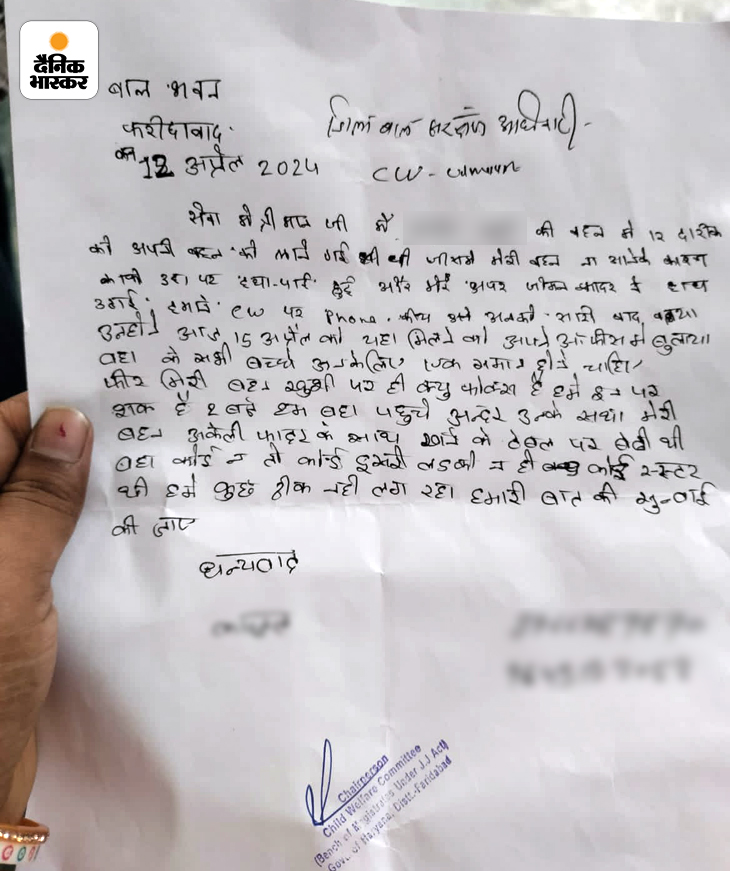 दैनिक
भास्कर
बाल भवन
फरीदाबाद
जिला बाल सरक्षण अधिकारी -
12 अप्रेल 2024
CW -
सेवा मे श्री मान जी में की बहन मे 12 तारीक
को अपनी बहन को लाने गई थी
काफी उहा पर हुई और मेरे
उठाई CW पर Phone सारी बाद
उन्होने आज 15 अप्रेल को यहा मिलने को अपने ऑफीस मे बुलाया
वहा के सभी बच्चे उनके लिए एक समान होने चाहिए
फीर मेरी बहन खुशी पर ही क्यु फोक्स है हमे उन पर
शक है 2 बजे हम वहा पहुचे अन्दर उनके साथ मेरी
बहन अकेली फादर के साथ खाने के टेबल पर बेठी थी
वहा कोई न तो कोई दुसरी लडकी न ही कोई स्स्टर
थी हमे कुछ ठीक नही लग रहा हमारी बात की सुनवाई
की जाए
धन्यवाद
Chairperson
Child Welfare Committee
(Bench of Magistrates Under J.J Act)
Govt. of Haryana, Distt.-Faridabad